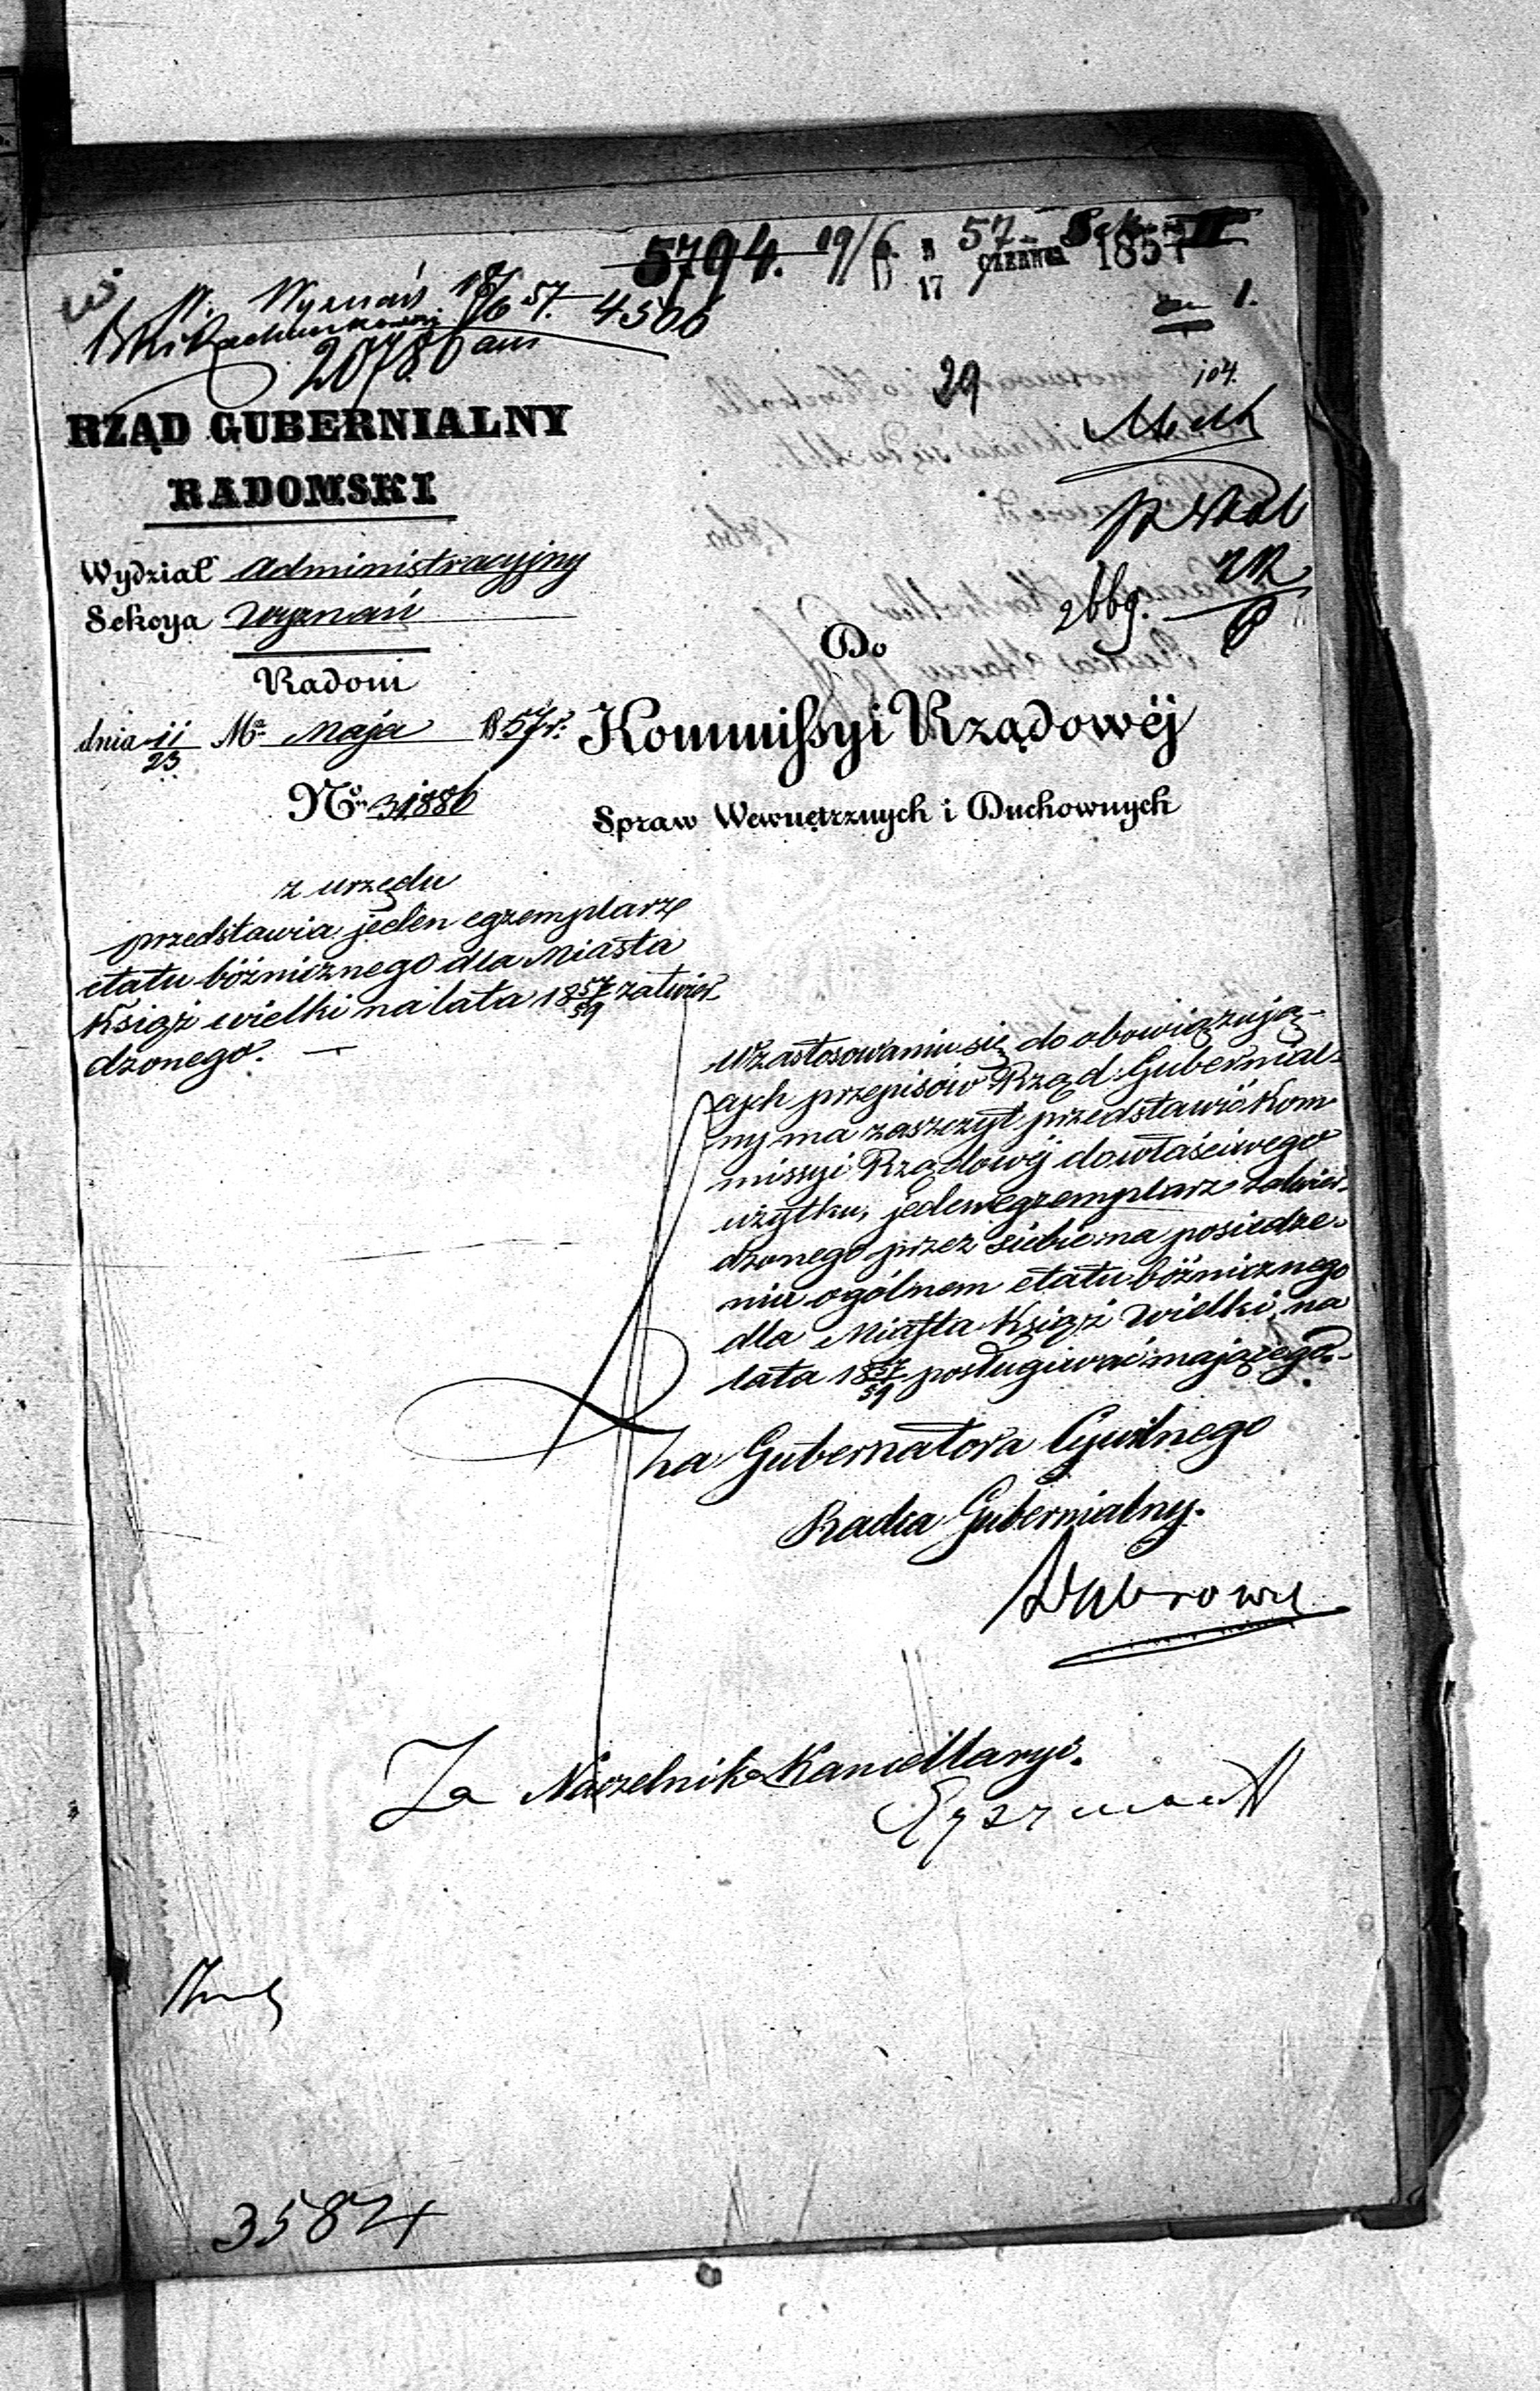 5794. 19/6 57 Sek. II
17 CZERWCA 1857
W. Wyznań 18/6 57. 4506
20786
1.
29
104.
RZĄD GUBERNIALNY
RADOMSKI
Wydział Administracyjny
Sekcya Wyznań
Radom
dnia 11/23 Mca Maja 1857 r.
No 31886
Do
Kommissyi Rządowéj
Spraw Wewnętrznych i Duchownych
z urzędu
przedstawia jeden egzemplarz
etatu bóżnicznego dla Miasta
Książ wielki na lata 1857/59 zatwier-
dzonego. —
W zastosowaniu się do obowiązują-
cych przepisów Rząd Gubernial-
ny ma zaszczyt przedstawić Kom
missyi Rządowéj do właściwego
użytku, jeden egzemplarz zatwier-
dzonego przez siebie na posiedze-
niu ogólnem etatu bóżnicznego
dla Miasta Książ Wielki, na
lata 1857/59 posługiwać mającego.
Za Gubernatora Cywilnego
Radca Gubernialny.
Za Naczelnika Kancellaryi.
35874